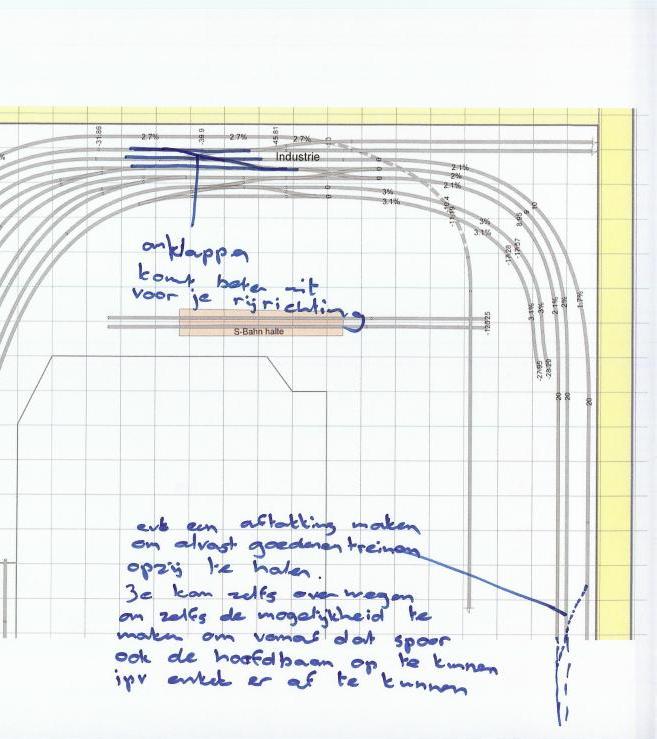 -31.86
-39.9
-45.81
2.7%
2.7%
2.7%
%
Industrie
2.1%
2%
2.1%
3%
3.1%
3%
3.1%
10
omklappen
komt beter uit
voor je rijrichting
S-Bahn halte
3.1%
3%
2.1%
2%
1.7%
20
20
20
evt een aftakking maken
om alvast goederentreinen
opzij te halen.
Je kan zelfs overwegen
om zelfs de mogelijkheid te
maken om vanaf dat spoor
ook de hoofdbaan op te kunnen
ipv enkel er af te kunnen